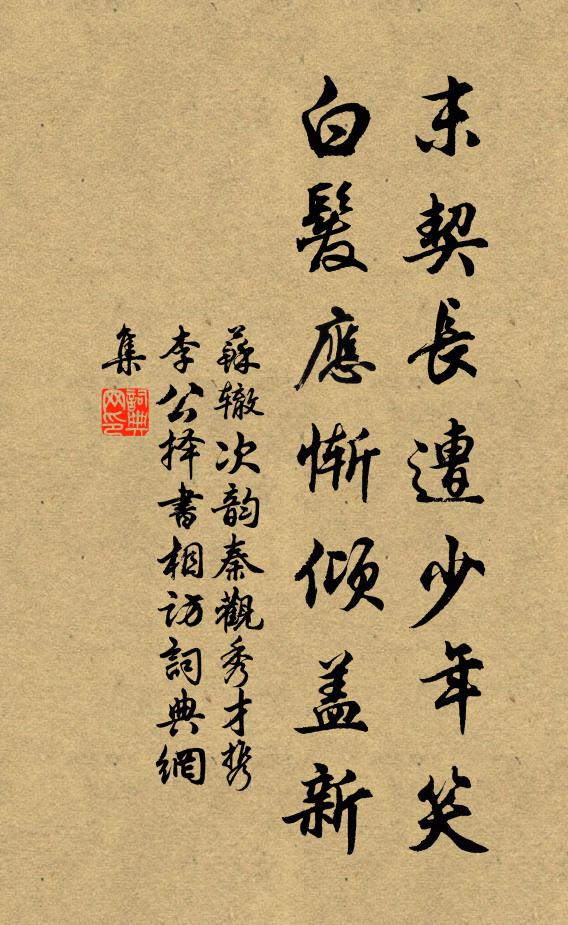 末契長遭少年笑
白髮應慚傾盖新
蘇辙次韵秦觀秀才携
李公择書相访詞典網
集
詞典網印